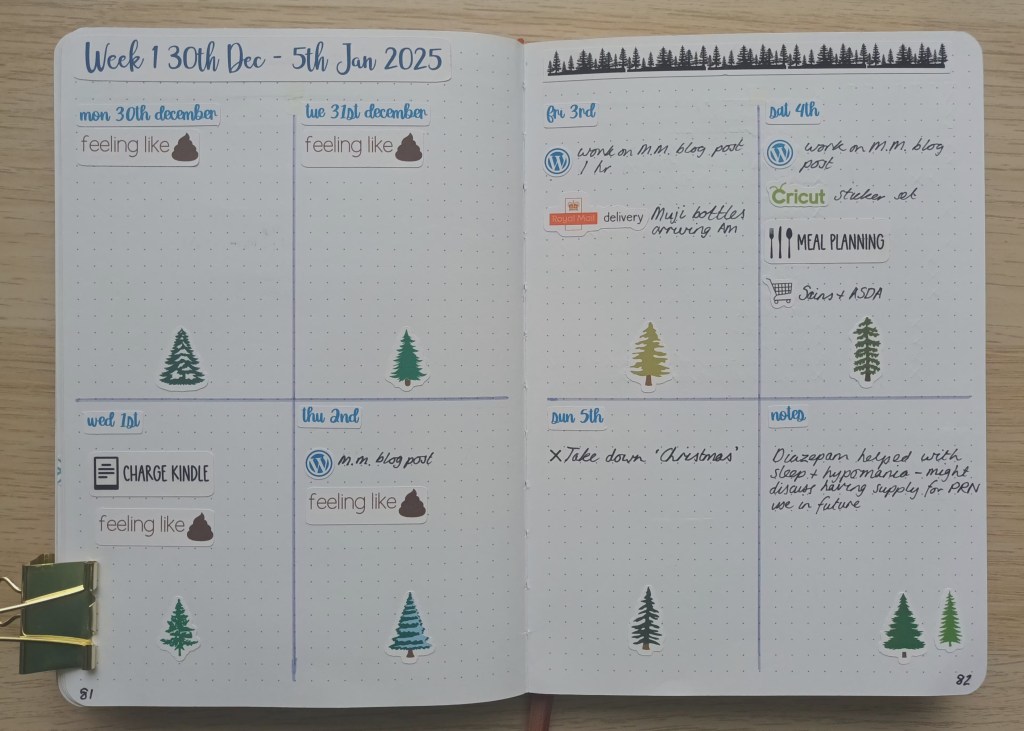 Week 1 30th Dec - 5th Jan 2025
mon 30th december
feeling like
tue 31st december
feeling like
wed 1st
CHARGE KINDLE
feeling like
thu 2nd
M.M. blog post
feeling like
81
fri 3rd
work on M.M. blog post
1 hr.
Royal Mail delivery Muji bottles
arriving Am
sat 4th
work on M.M. blog
post
Cricut sticker set
MEAL PLANNING
Sains + ASDA
sun 5th
X Take down 'Christmas'
notes
Diazepam helped with
sleep + hypomania - might
discuss having supply for PRN
use in future
82